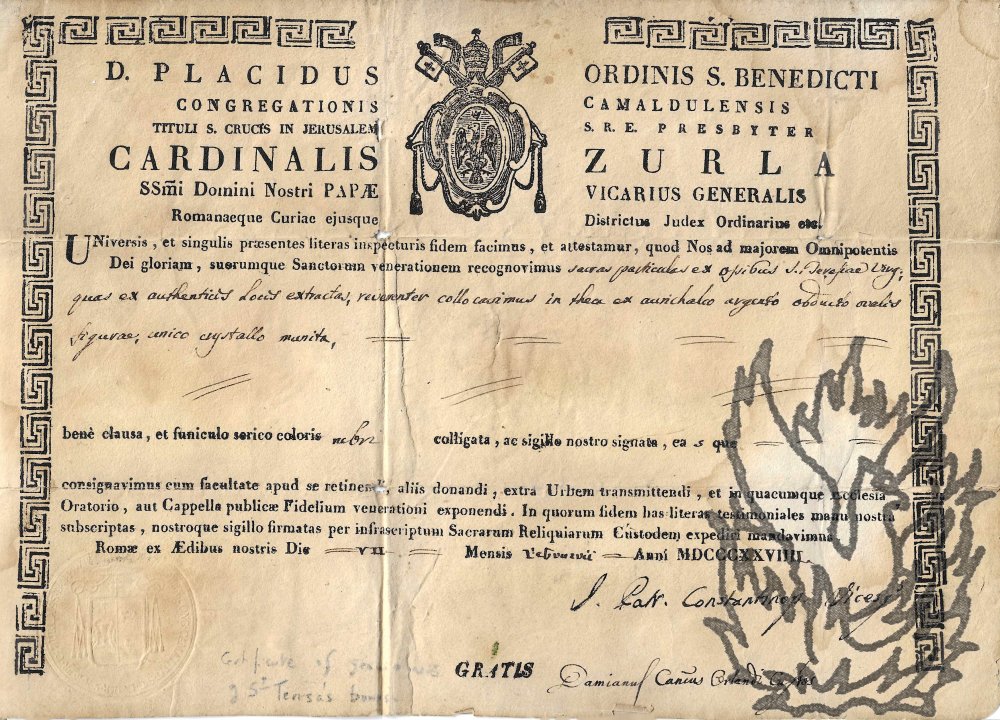 D. PLACIDUS ORDINIS S. BENEDICTI
CONGREGATIONIS CAMALDULENSIS
TITULI S. CRUCIS IN JERUSALEM S. R. E. PRESBYTER
CARDINALIS ZURLA
SSm̃i Domini Nostri PAPÆ VICARIUS GENERALIS
Romanaeque Curiae ejusque Districtus Judex Ordinarius etc.
UNiversis, et singulis præsentes literas inspecturis fidem facimus, et attestamur, quod Nos ad majorem Omnipotentis
Dei gloriam, suorumque Sanctorum venerationem recognovimus sacras particulas ex ossibus S. Teresiae Virg:
quas ex authenticis Locis extractas, reverenter collocavimus in theca ex aurichalco argento obducto ovalis
figurae, unico crystallo munita,
benè clausa, et funiculo serico coloris rubri colligata, ac sigillo nostro signata, eas que
consignavimus cum facultate apud se retinendi, aliis donandi, extra Urbem transmittendi, et in quacumque Ecclesia
Oratorio, aut Cappella publicæ Fidelium venerationi exponendi. In quorum fidem has literas testimoniales manu nostra
subscriptas, nostroque sigillo firmatas per infrascriptum Sacrarum Reliquiarum Custodem expediri mandavimus
Romæ ex Ædibus nostris Die VII Mensis Februarii Anni MDCCCXXVIIII.
J. Patr. Constantinop. Vicesg
GRATIS
Damianus Cancus Orlandi Custos
Certificate of genuineness
of St Teresas bones